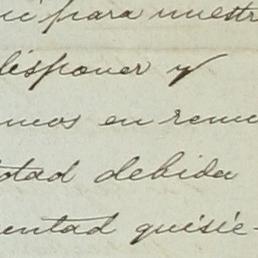 para nuestr
disponer y
mos en remu
tad debida
entad quisie-